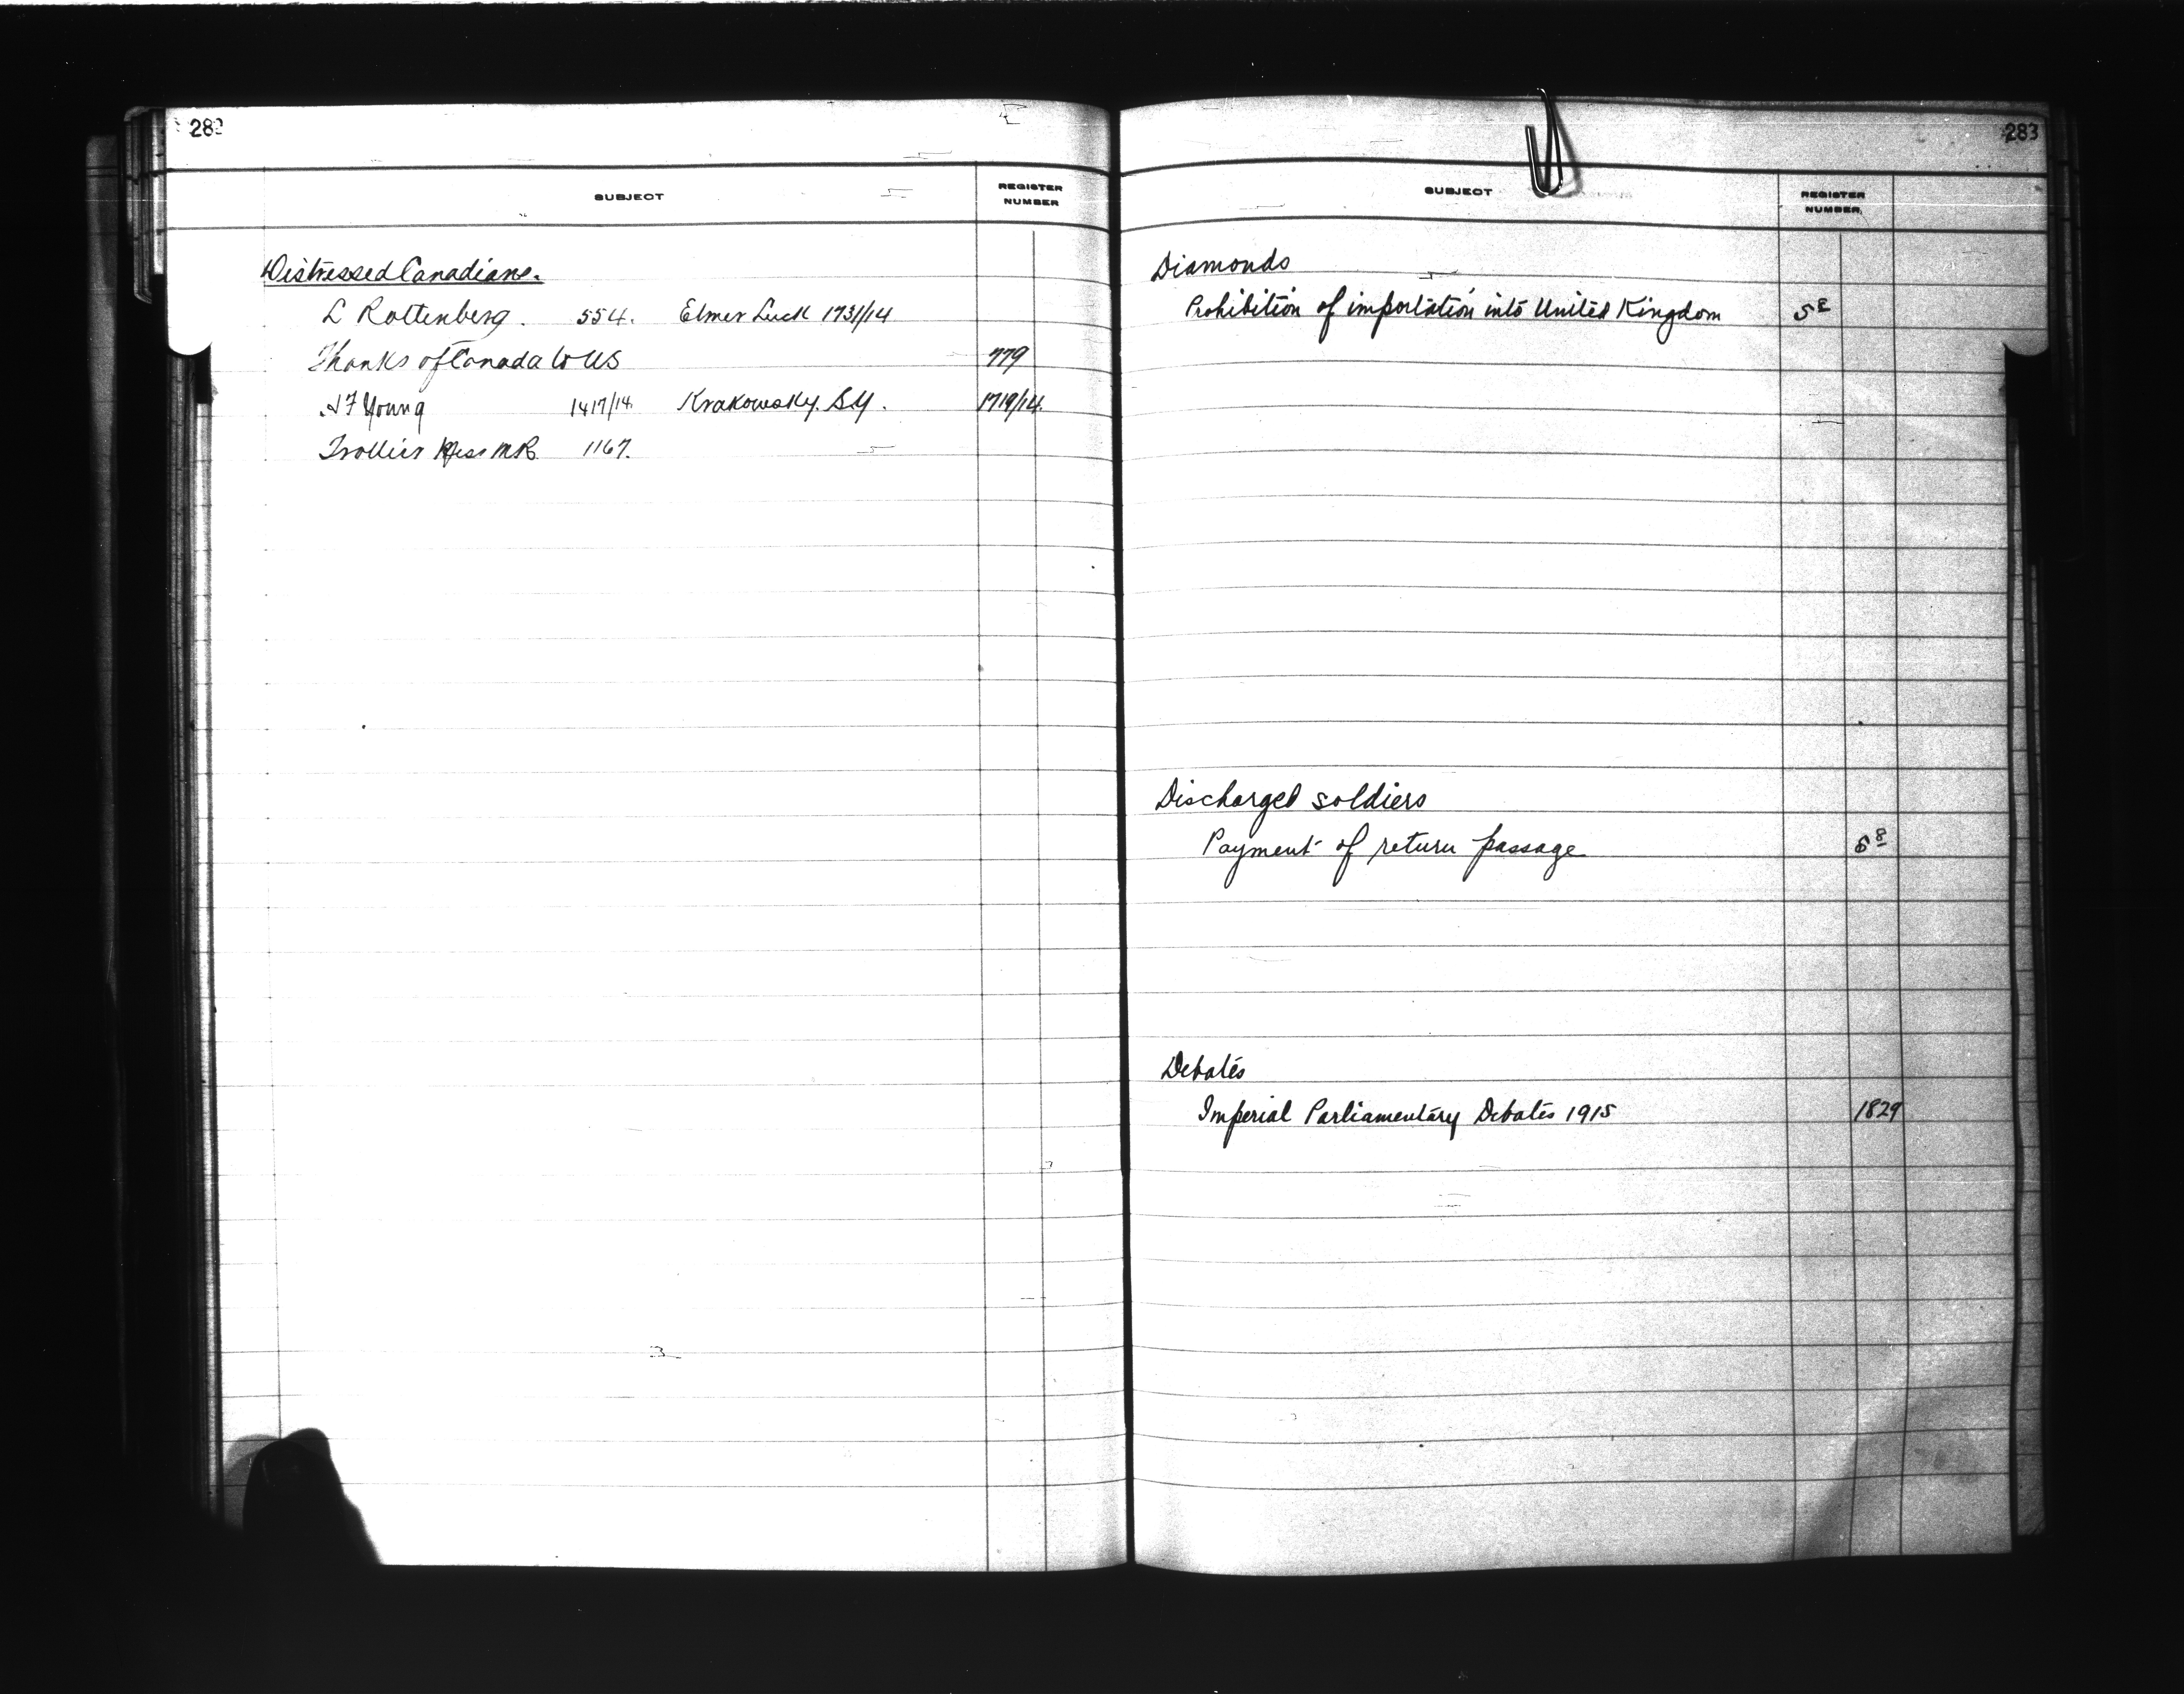 282
SUBJECT
REGISTER
NUMBER
Distressed Canadians.
L Rottenberg. 554. Elmer Luck 1731/14
Thanks of Canada to US 779
A F Young 1417/14. Krakowsky. S.Y. 1719/14.
Miss M.R. 1167.
283
SUBJECT
REGISTER
NUMBER.
Diamonds
Prohibition of importation into United Kingdom 5 E
Discharged soldiers
Payment of return passage 6 8
Debates
Imperial Parliamentary Debates 1915 1829